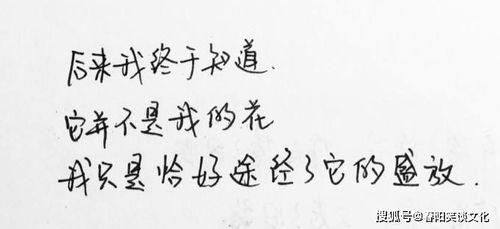 后来我终于知道.
它并不是我的花
我只是恰好途经了它的盛放.
搜狐号@春阳笑谈文化